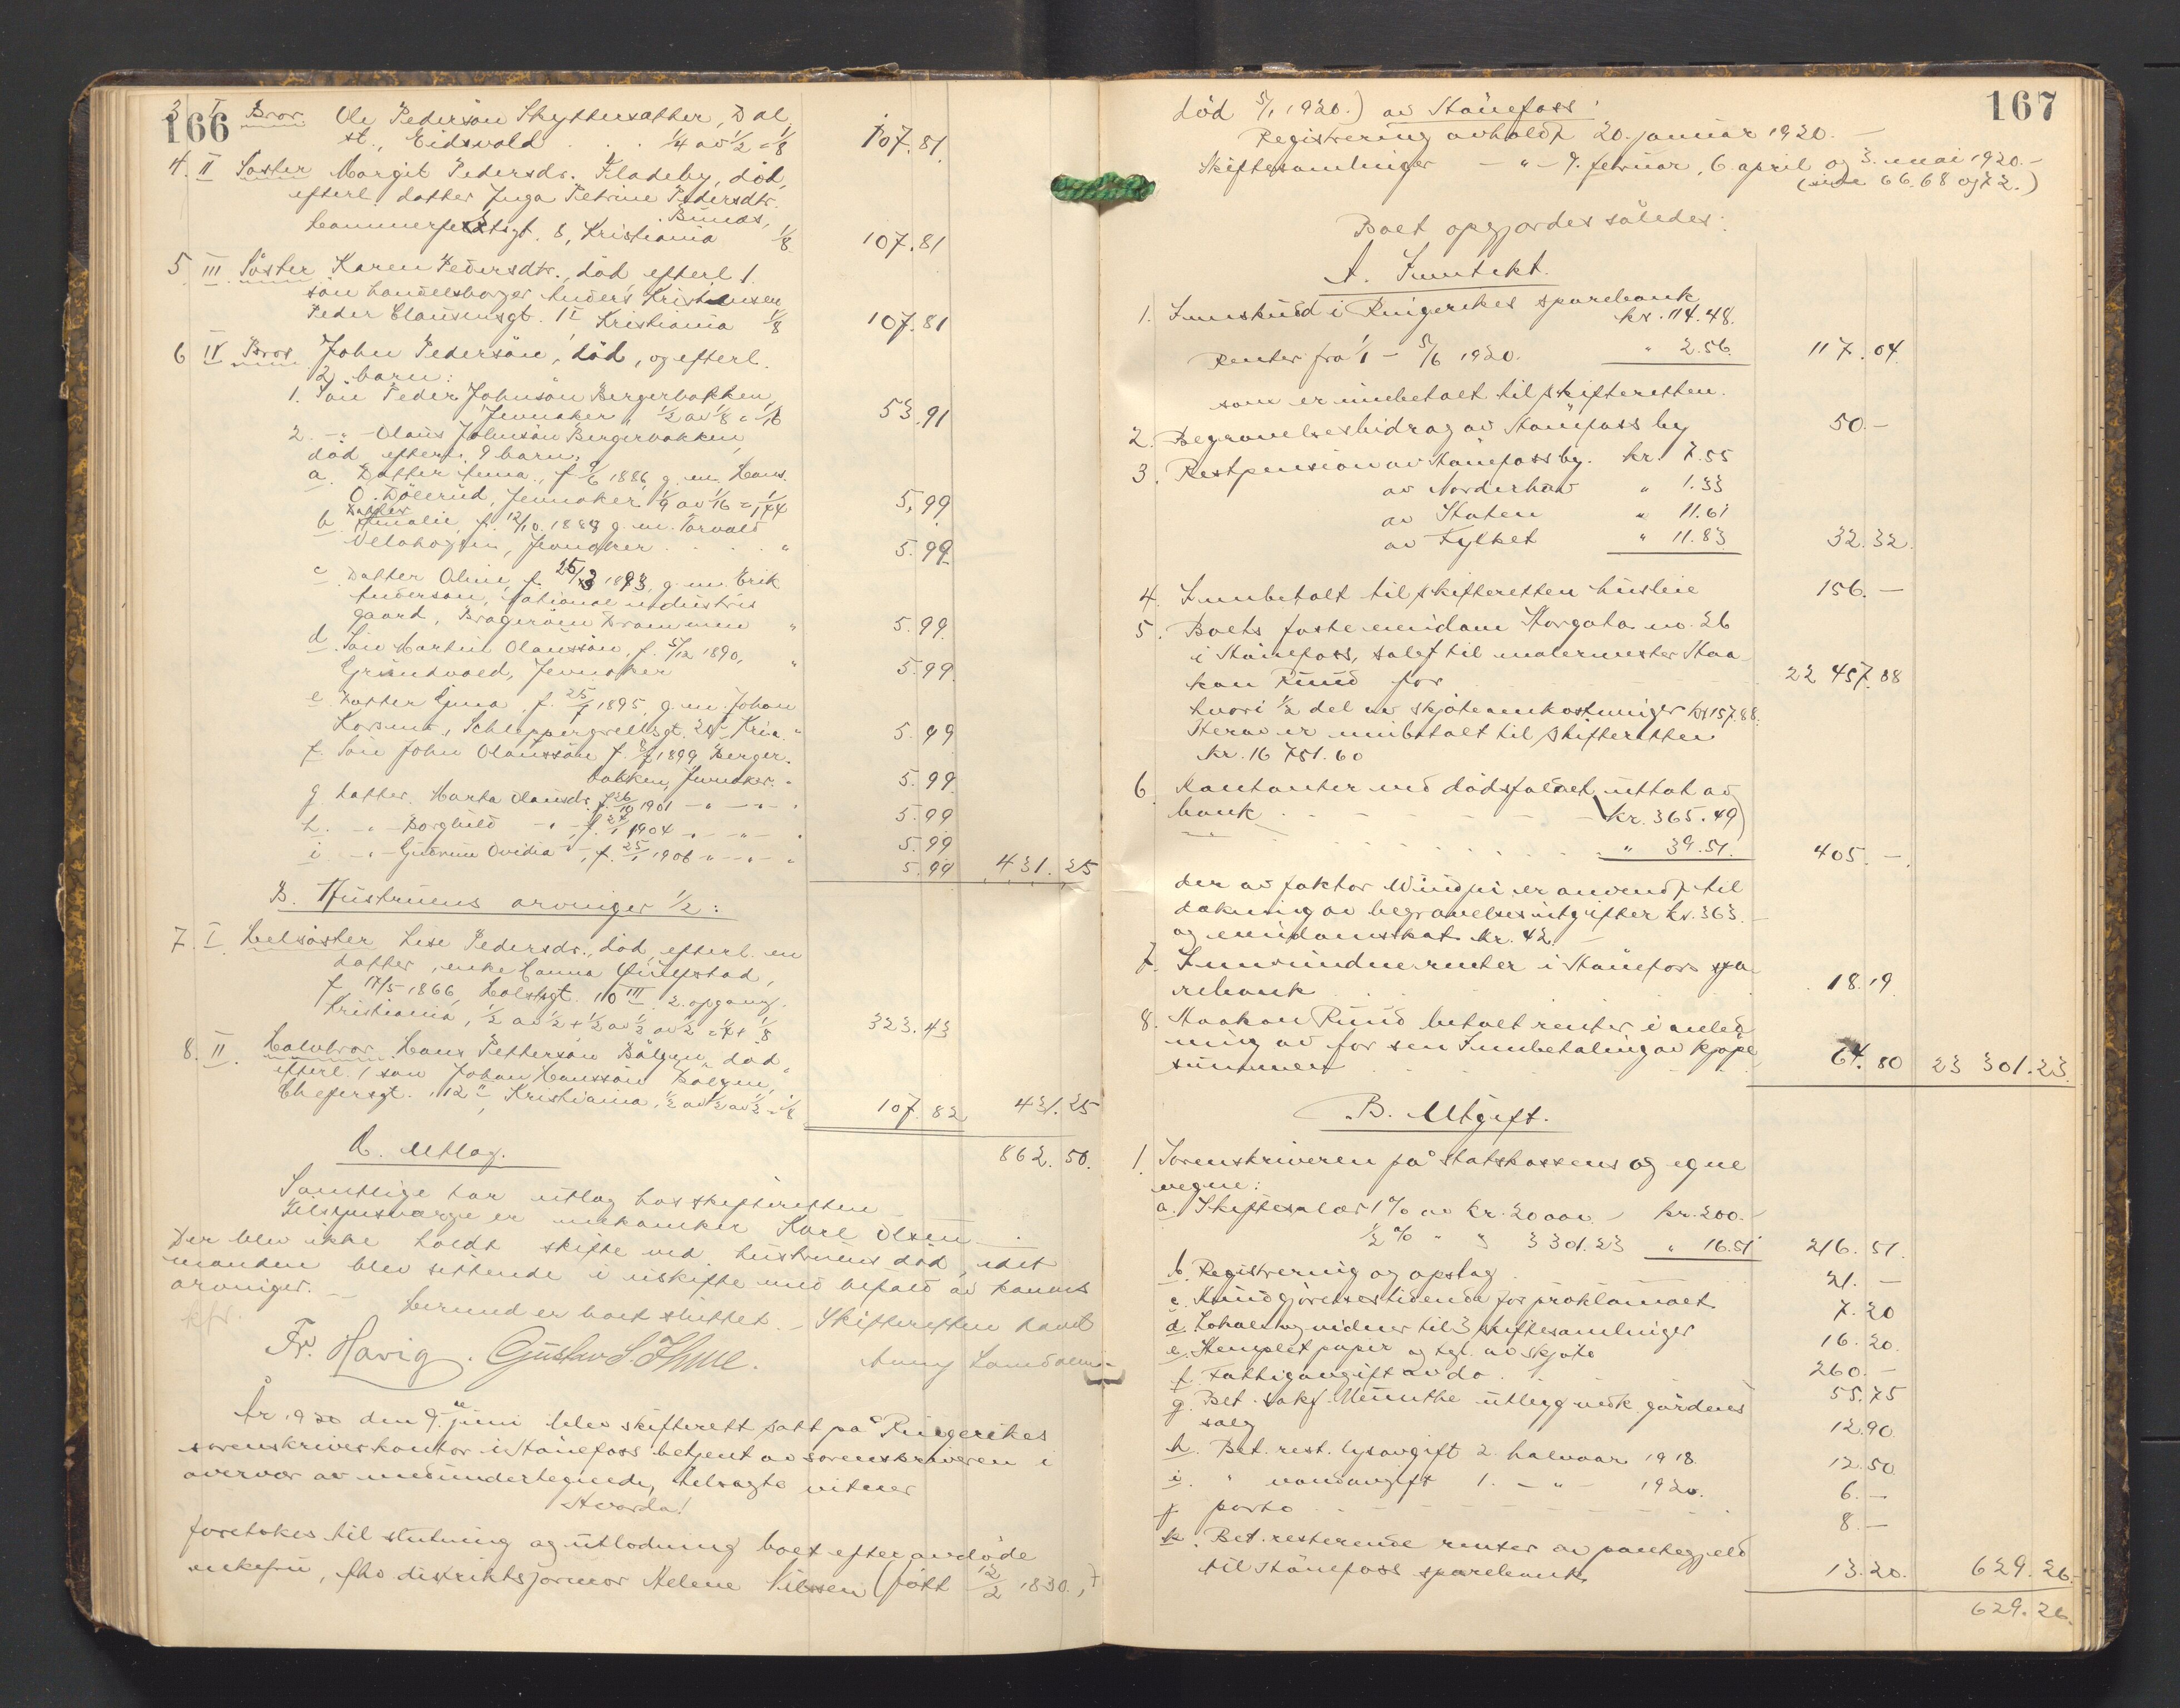 166
3 I Bror Ole Pedersön Skyttersæther, Dal
st., Eidsvold . . . 1/4 av 1/2 = 1/8 107.81
4. II Söster Margit Pedersdr. Fladeby, död,
efterl. datter Inga Petrine Pedersdtr.
Bünæs,
Hammerfestgt. 8, Kristiania 1/8 107.81
5 III Söster Karen Pedersdtr., död efterl. 1
sön handelsborger Anders Kristensen
Peder Clausensgt. 1 I Kristiania 1/8 107.81
6 IV Bror John Pedersön, död, og efterl.
2 barn:
1. Sön Peder Johnsön Bergerbakken,
Jevnaker 1/2 av 1/8 = 1/16 53.91
2. -"- Olaus Johnsön Bergerbakken,
död, efterl. 9 barn:
a. Datter Anna, f. 9/6 1886, g. m. Hans
O. Dölerud, Jevnaker 1/9 av 1/16 = 1/144 5.99
b. Datter Amalie, f. 12/10 1888 g. m. Torvald
, Jevnaker . . . " 5.99
c Datter Oline, f. 25/3 1893, g. m. Erik
Anderson, National industris
gaard, Bragerøen Drammen " 5.99
d. Sön Martin Olaussön, f. 5/12 1890,
Grindvold, Jevnaker " 5.99
e Datter Gina, f. 25/7 1895, g. m. Johan
, Schleppegrellsgt. Kria. " 5.99
f. Sön John Olaussön f. 1899 Berger-
bakken, Jevnaker. " 5.99
g. datter. Marta Olausdr. f. 26/10 1901 -"- -"- " 5.99
h. -"- Borghild -"-, f. 27/1 1904 -"- -"- " 5.99
i -"- Gudrun Ovidia -"-, f. 25/1 1906 -"- -"- " 5.99 431.25
B. Hustruens arvinger 1/2:
7. I. Helsöster Lise Pedersdr., död, efterl. en
datter, enke Hanna,
f. 17/5 1866, Holstgt. 10 III 2. opgang.
Kristiania, 1/2 av 1/2 + 1/2 av 1/2 av 1/2 = 1/4 + 1/8 323.43
8. II. Halvbror Hans Pettersön Bölgen, död,
efterl. 1 sön Johan Hanssön Bölgen,
. 12 II, Kristiania, 1/2 av 1/2 av 1/2 = 1/8 107.82 431.25
862.50.
C. Utlag.
Samtlige har utlag hos skifteretten
Tilsynsverge er mekaniker Karl Olsen.
Der blev ikke holdt skifte ved hustruens död, idet
manden blev sittende i uskifte med bifald av hennes
arvinger. — Hermed er boet sluttet. — Skifteretten hævet
Fr. Havig. Gustav S. Ihme.
År 1920 den 9. de juni blev skifterett satt på Ringerikes
sorenskriverkontor i Hönefoss betjent av sorenskriveren i
overvær av medundertegnede, tilsagte vitner
Hvorda!
foretokes til slutning og utlodning boet efter avdöde
enkefru, fhv. distriktsjormor Helene Nilssen (född 12/2 1830, †
167
död 5/1 1920.) av Hönefoss:
Registrering avholdt 20. januar 1920. —
Skiftesamlinger -"- 9. februar, 6 april og 3. mai 1920. —
(side 66.68 og 72.)
Boet opgjordes således:
A. Inntekt.
1. Innskudd i Ringerikes sparebank
kr. 114.48.
Renter fra 1/1 - 5/6 1920. " 2.56 117.04
som er innbetalt til skifteretten.
2. Begravelsesbidrag av Hönefoss by 50.—
3. Restpension av Hönefoss by. kr. 7.55
av Norderhov " 1.33
av Staten " 11.61
av Fylket " 11.83 32.32.
4. Innbetalt til skifteretten husleie 156.—
5. Boets faste eiendom Storgata no. 26
i Hönefoss, solgt til malermester Haa-
kon Ruud for 22 457.88
hvori 1/2 del av skjöteomkostninger kr 157.88.
Herav er innbetalt til skifteretten
kr. 16 751.60
6. Kontanter ved dödsfallet uttat av
bank . . . . (kr. 365.49)
. . . . . . " 39.51. 405.—.
der av faktor er anvendt til
dækning av begravelsesutgifter kr. 363.—
og eiendomsskat kr. 42.—
7. Innvundne renter i Hönefoss spa-
rebank . . . . 18.19
8. Haakon Ruud betalt renter i anled-
ning av for sen Innbetaling av kjöpe-
summen . . . 64.80 23 301.23
B. Utgift.
1. Sorenskriveren på statskassens og egne
vegne:
a. Skiftesalær 1% av kr. 20 000.— kr. 200.—
1/2 % " " 3 301.23 " 16.51 216.51.
b. Registrering og opslag 21.—
c. Kundgjörelsestidende for proklamaet 7.20
d. Lokale og vidner til 3 skiftesamlinger 16.20.
e. Stemplet papir og tgl. av skjöte 260.—
f. Fattigavgift av do. 55.75
g. Bet. sakf. Munthe utlegg vedk. gårdens
salg 12.90
h. Bet. rest. lysavgift 2. halvaar 1918. 12.50
i. " vandavgift 1. -"- 1920. 6.—
j porto . . . 8.—
k. Bet. resterende renter av pantegjeld
til Hönefoss sparebank 13.20. 629.26.
629.26.